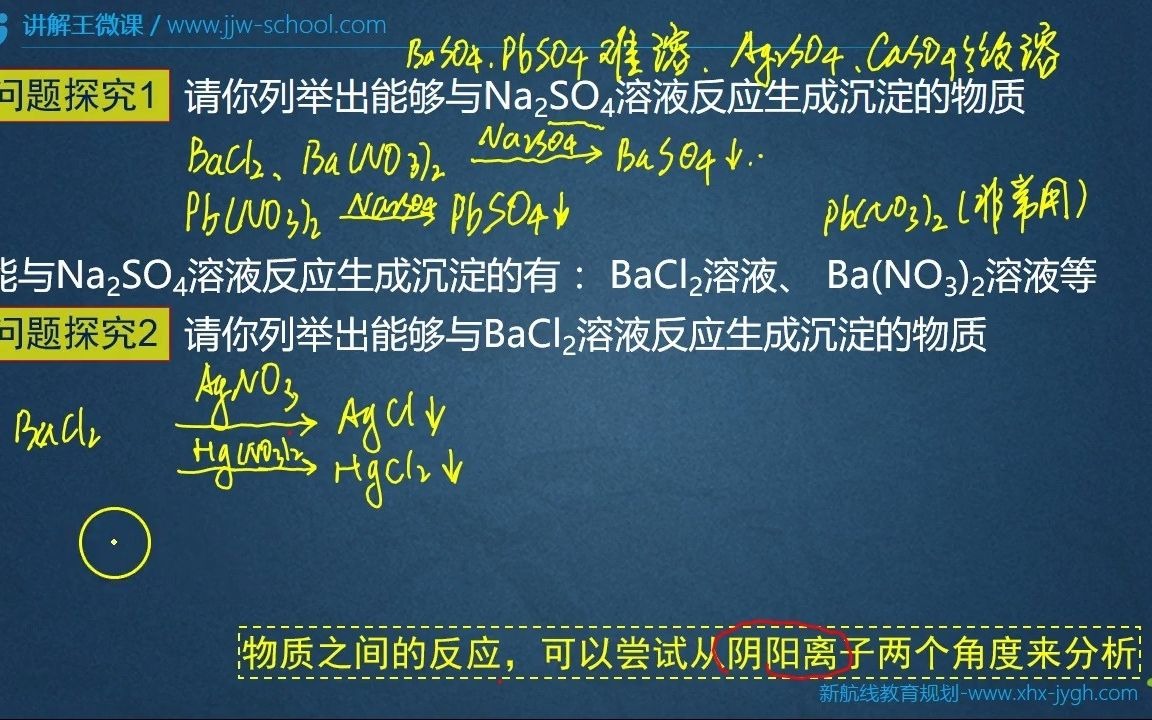 讲解王微课 / www.jjw-school.com
BaSO4、PbSO4难溶、Ag2SO4、CaSO4微溶
问题探究1 请你列举出能够与Na₂SO₄溶液反应生成沉淀的物质
BaCl2、Ba(NO3)2 Na2SO4 → BaSO4↓
Pb(NO3)2 Na2SO4 → PbSO4↓ Pb(NO3)2(非常用)
能与Na₂SO₄溶液反应生成沉淀的有： BaCl₂溶液、 Ba(NO₃)₂溶液等
问题探究2 请你列举出能够与BaCl₂溶液反应生成沉淀的物质
BaCl2 AgNO3 → AgCl↓
Hg(NO3)2 → HgCl2↓
物质之间的反应，可以尝试从阴阳离子两个角度来分析
新航线教育规划-www.xhx-jygh.com